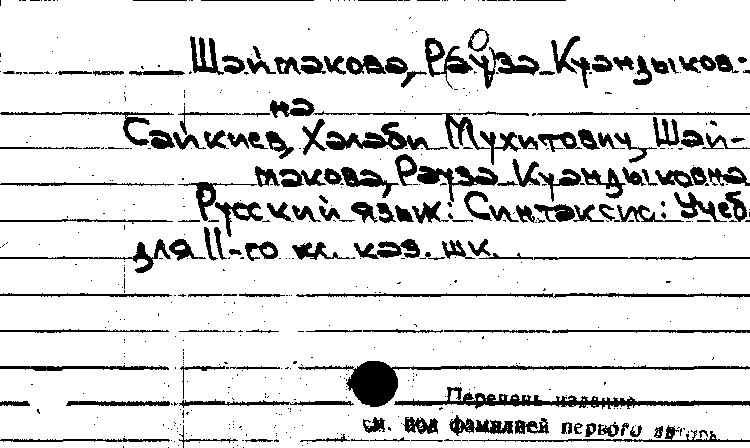 Шаймакова, Рауза Куандыков-
на
Сайкиев, Халаби Мухитович, Шай-
макова, Рауза Куандыковна
Русский язык: Синтаксис: Учеб.
для 11-го кл. каз. шк.
Перечень издания
см. под фамилией первого автора